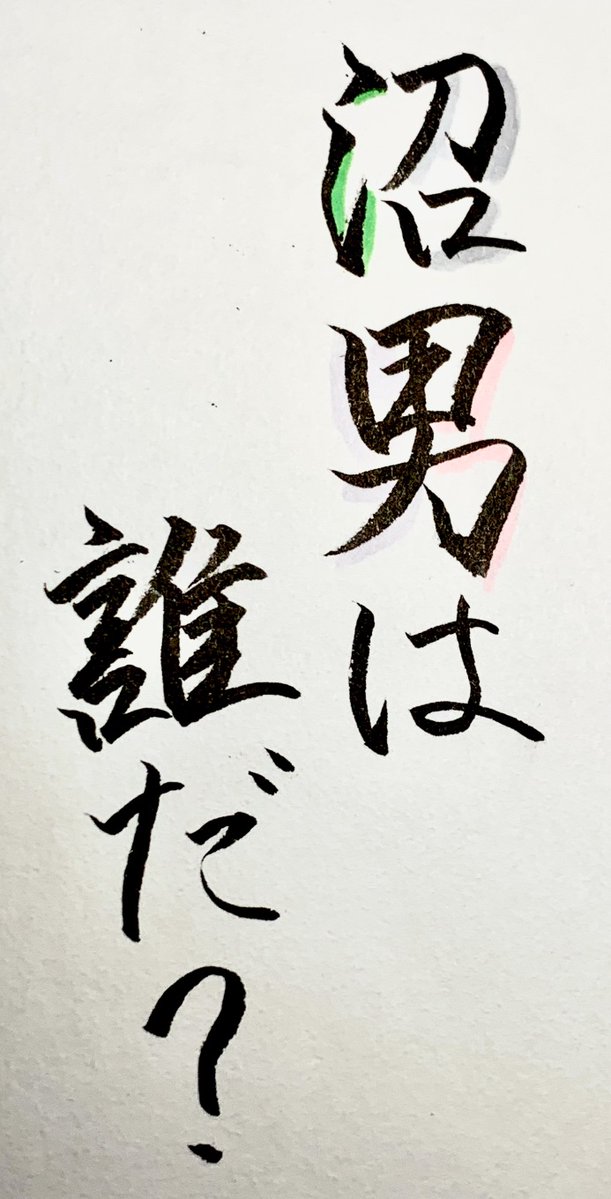 沼男は
誰だ？